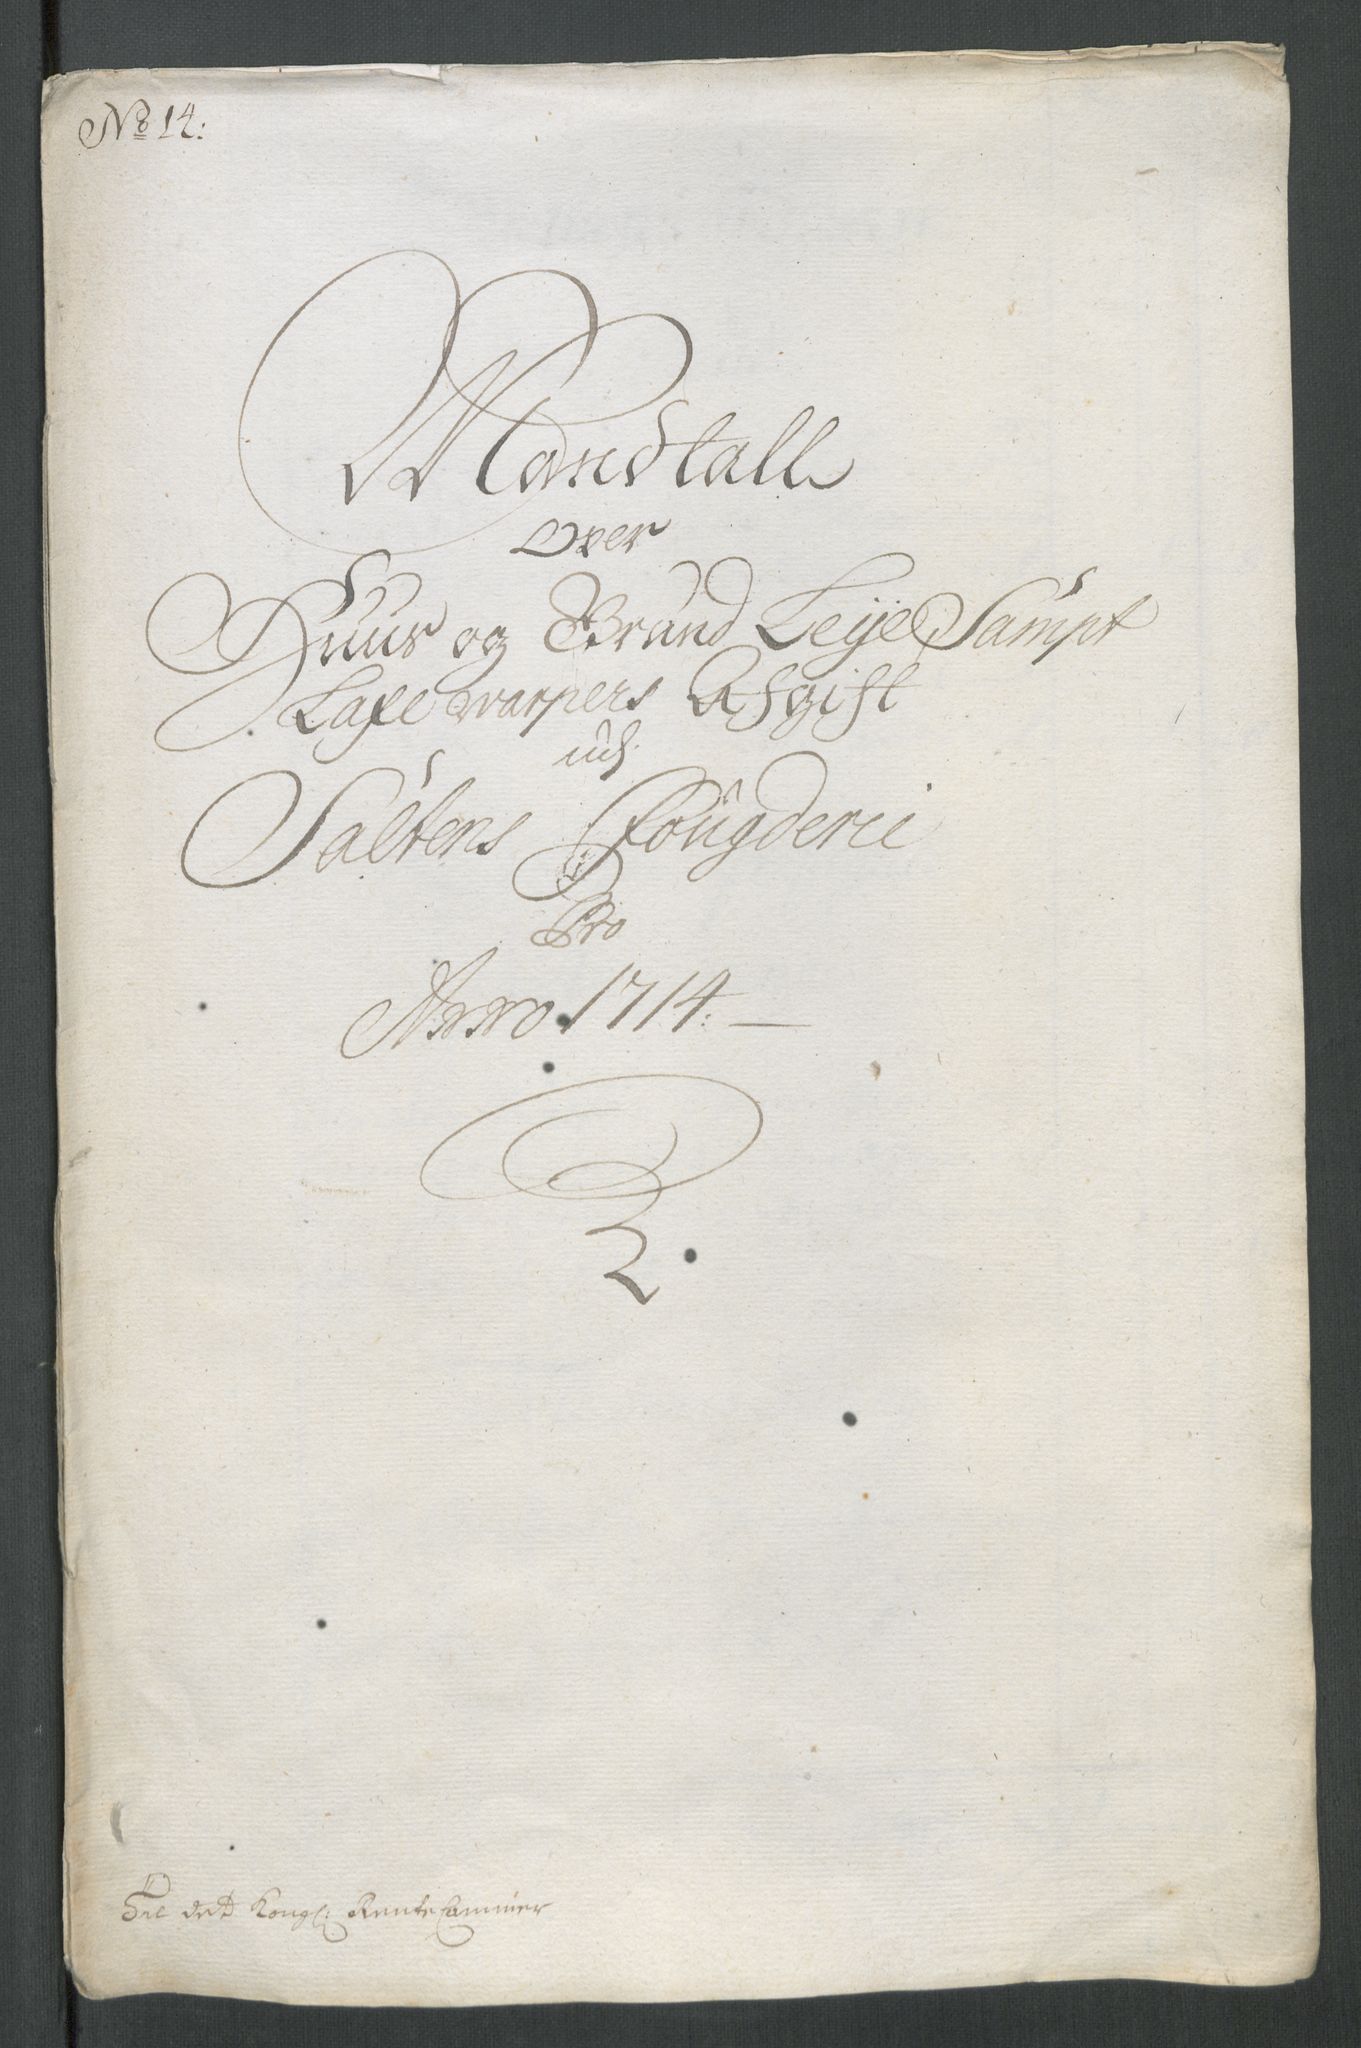 No 14:
Mandtall
Over
Huus og Grund Leije Sampt
Laxe warpers Afgift
udj
Saltens Fougderie
Pro
Anno 1714. —
Til det Kongl: Rente Cammer